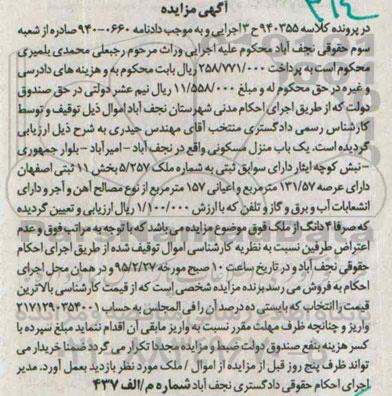 ۳۱۴
آگهی مزایده
در پرونده کلاسه ۹۴۰۳۵۵ ح ۳ اجرایی و به موجب دادنامه ۰۶۶۰-۹۴۰ صادره از شعبه
سوم حقوقی نجف آباد محکوم علیه اجرایی وراث مرحوم رجبعلی محمدی یلمیری
محکوم است به پرداخت ۲۵۸/۷۷۱/۰۰۰ ریال بابت محکوم به و هزینه های دادرسی
و غیره در حق محکوم له و مبلغ ۱۱/۵۵۸/۰۰۰ ریال نیم عشر دولتی در حق صندوق
دولت که از طریق اجرای احکام مدنی شهرستان نجف آباد اموال ذیل توقیف و توسط
کارشناس رسمی دادگستری منتخب آقای مهندس حیدری به شرح ذیل ارزیابی
گردیده است. یک باب منزل مسکونی واقع در نجف آباد - امیرآباد - بلوار جمهوری
- نبش کوچه ایثار دارای سوابق ثبتی به شماره ملک ۵/۲۵۷ بخش ۱۱ ثبتی اصفهان
دارای عرصه ۱۳۱/۵۷ مترمربع و اعیانی ۱۵۷ مترمربع از نوع مصالح آهن و آجر و دارای
انشعابات آب و برق و گاز و تلفن که با ارزش ۱/۱۰۰/۰۰۰ ریال ارزیابی و تعیین گردیده
که صرفا ۴ دانگ از ملک فوق موضوع مزایده می باشد که با توجه به مراتب فوق و عدم
اعتراض طرفین نسبت به نظریه کارشناسی اموال توقیف شده از طریق اجرای احکام
حقوقی نجف آباد و در تاریخ ساعت ۱۰ صبح مورخه ۹۵/۲/۲۷ و در همان محل اجرای
احکام به فروش می رسد برنده مزایده شخصی است که از قیمت کارشناسی بالاترین
قیمت را انتخاب که بایستی ده درصد آن را فی المجلس به حساب ۲۱۷۱۲۹۰۳۵۴۰۰۱
واریز و چنانچه ظرف مهلت مقرر نسبت به واریز مابقی آن اقدام ننماید مبلغ سپرده با
کسر هزینه بنفع صندوق دولت ضبط و مزایده مجددا تکرار می گردد ضمنا خریدار می
تواند ظرف پنج روز قبل از مزایده از اموال / ملک مورد نظر بازدید بعمل آورد. مدیر
اجرای احکام حقوقی دادگستری نجف آباد شماره م/الف ۴۳۷